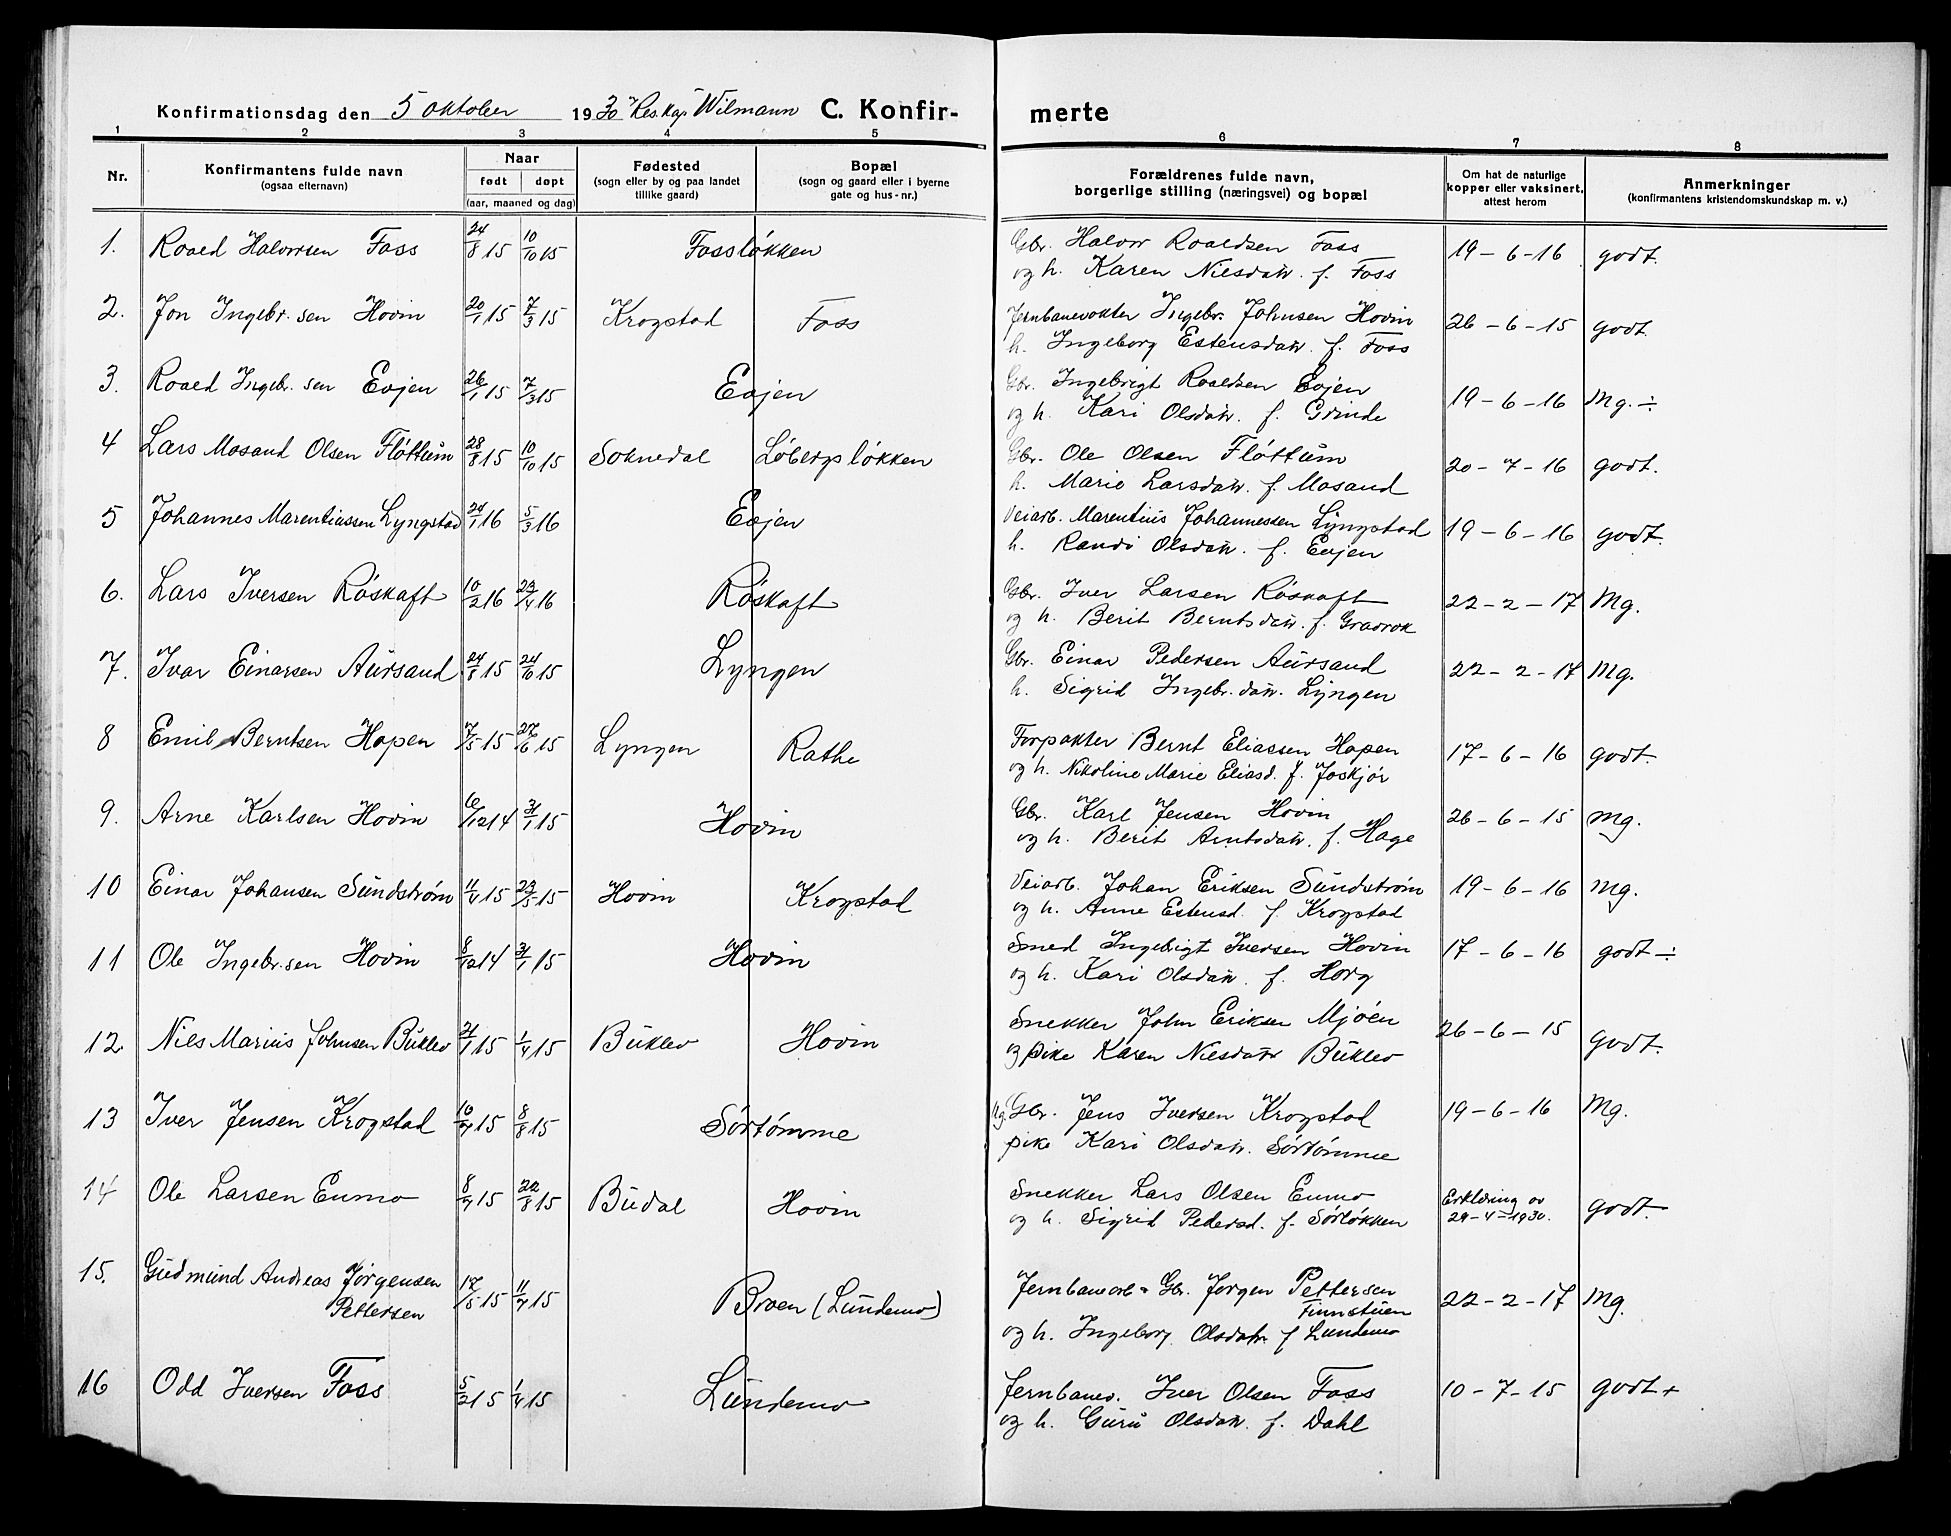 Konfirmationsdag den 5 oktober 1930 v. Res.kap. Wilmann C. Konfir- merte
1 2 3 4 5 6 7 8
Nr. Konfirmantens fulde navn (ogsaa efternavn) Naar født døpt (aar, maaned og dag) Fødested (sogn eller by og paa landet tillike gaard) Bopæl (sogn og gaard eller i byerne gate og hus-nr.) Forældrenes fulde navn, borgerlige stilling (næringsvei) og bopæl Om hat de naturlige kopper eller vaksinert, attest herom Anmerkninger (konfirmantens kristendomskundskap m. v.)
1. Roald Halvorsen Foss 24/8 15 10/10 15 Fossløkken Gbr. Halvor Roaldsen Foss 19-6-16 godt.
og h. Karen Nilsdatr. f. Foss
2. Jon Ingebr.sen Hovin 20/1 15 7/3 15 Krogstad Foss Jernbanevokter Ingebr. Johnsen Hovin 26-6-15 godt.
h. Ingeborg Estensdatr. f. Foss
3. Roald Ingebr.sen Evjen 26/1 15 7/3 15 Evjen Gbr. Ingebrigt Roaldsen Evjen 19-6-16 Mg. ÷
og h. Kari Olsdatr. f. Grinde
4 Lars Mosand Olsen Fløttum 28/8 15 10/10 15 Soknedal Løbergsløkken Gbr. Ole Olsen Fløttum 20-7-16 godt.
h. Marie Larsdatr. f. Mosand
5 Johannes Marentiussen Lyngstad 24/1 16 5/3 16 Evjen Veiarb. Marentius Johannessen Lyngstad 19-6-16 godt.
h. Randi Olsdatr. f. Evjen
6. Lars Iversen Røskaft 10/2 16 23/4 16 Røskaft Gbr. Iver Larsen Røskaft 22-2-17 Mg.
og h. Berit Berntsdatr. f. Gravrok
7. Ivar Einarsen Aursand 24/8 15 24/10 15 Lyngen Gbr. Einar Pedersen Aursand 22-2-17 Mg.
h. Sigrid Ingebr.datr. Lyngen
8 Emil Berntsen Hopen 7/5 15 27/6 15 Lyngen Rathe Forpakter Bernt Eliassen Hopen 17-6-16 godt.
og h. Nikoline Marie Eliasd. f. Joskjør
9. Arne Karlsen Hovin 6/12 14 31/1 15 Hovin Gbr. Karl Jensen Hovin 26-6-15 mg.
og h. Berit Arntsdatr. f. Hage
10 Einar Johansen Sundstrøm 11/4 15 23/5 15 Hovin Krogstad Veiarb. Johan Eriksen Sundstrøm 19-6-16 mg.
og h. Anne Estensd. f. Krogstad
11 Ole Ingebr.sen Hovin 8/12 14 31/1 15 Hovin Smed Ingebrigt Iversen Hovin 17-6-16 godt ÷
og h. Kari Olsdatr. f. Horg
12. Nils Marius Johnsen Buklev 21/1 15 1/4 15 Buklev Hovin Snekker John Eriksen Mjøen 26-6-15 godt.
og pike Karen Nilsdatr Buklev
13 Iver Jensen Krogstad 10/7 15 8/8 15 Sørtømme Ug. Gbr. Jens Iversen Krogstad 19-6-16 Mg.
pike Kari Olsdatr. Sørtømme
14 Ole Larsen Enmo 8/7 15 22/8 15 Budal Hovin Snekker Lars Olsen Enmo Erklæring av godt.
og h. Sigrid Pedersd. f. Sørløkken 29-4-1930.
15. Gudmund Andreas Jørgensen 17/5 15 11/7 15 Broen (Lundemo) Jernbanearb. Gbr. Jørgen Pettersen 22-2-17 Mg.
Pettersen Finnstuen
og h. Ingeborg Olsdatr f Lundemo
16 Odd Iversen Foss 5/2 15 1/4 15 Lundemo Jernbanev. Iver Olsen Foss 10-7-15 godt +
og h. Guru Olsdatr. f. Dahl